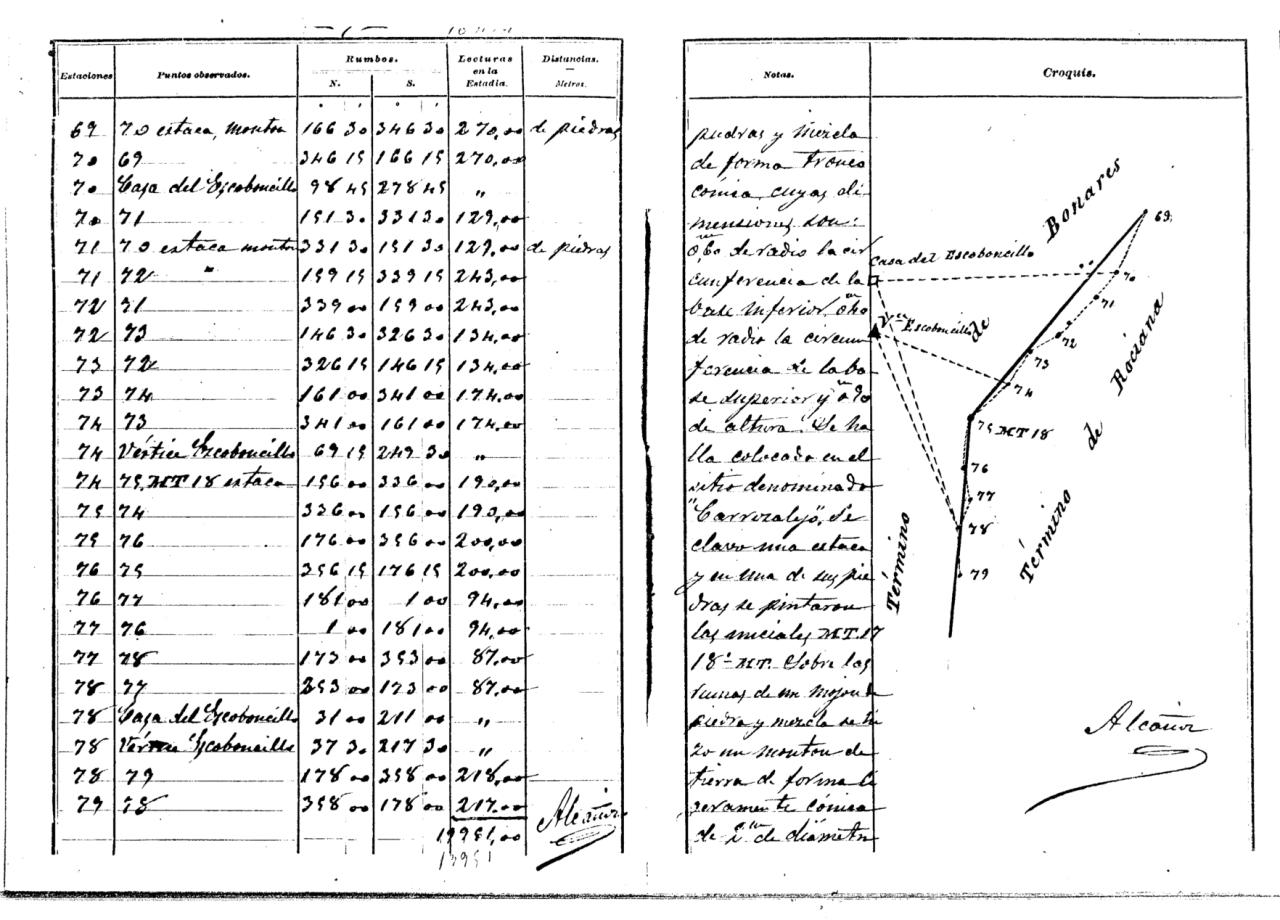 Estaciones Puntos observados. Rumbos. N. S. Lecturas en la Estadia. Distancias. Metros.
69 70 estaca, monton 166 30 346 30 270,00 de piedras
70 69 346 15 166 15 270,00
70 Casa del Escoboncillo 98 45 278 45 "
70 71 151 30 331 30 129,00
71 70 estaca monton 331 30 151 30 129,00 de piedras
71 72 " 159 15 339 15 243,00
72 71 339 00 159 00 243,00
72 73 146 30 326 30 134,00
73 72 326 15 146 15 134,00
73 74 161 00 341 00 174,00
74 73 341 00 161 00 174,00
74 Vértice Escoboncillo 69 15 249 30 "
74 75, MT 18 estaca 156 00 336 00 190,00
75 74 336 00 156 00 190,00
75 76 176 00 356 00 200,00
76 75 356 15 176 15 200,00
76 77 181 00 1 00 94,00
77 76 1 00 181 00 94,00
77 78 173 00 353 00 87,00
78 77 353 00 173 00 87,00
78 Casa del Escoboncillo 31 00 211 00 "
78 Vértice Escoboncillo 37 30 217 30 "
78 79 178 00 358 00 218,00
79 78 358 00 178 00 217,00
19951,00
19951
Alcañiz
Notas.
piedras y mezcla
de forma tronco
cónica, cuyas di
mensiones, son:
0,60 de radio la cir
cunferencia de la
base inferior, 0,40
de radio la circun
ferencia de la ba
se superior y 0,70
de altura. Se ha
lla colocado en el
sitio denominado
"Carrozalejo", Se
clavo una estaca
y en una de sus pie
dras se pintaron
las iniciales M.T. 17
18º MT. Sobre las
ruinas de un mojon de
piedra y mezcla se hi
zo un monton de
tierra de forma li
geramente cónica
de 2m de diámetro
Croquis.
Término de Bonares
Casa del Escoboncillo
Vce Escoboncillo
69
70
71
72
73
74
75 MT 18
76
77
78
79
Término de Rociana
Alcañiz